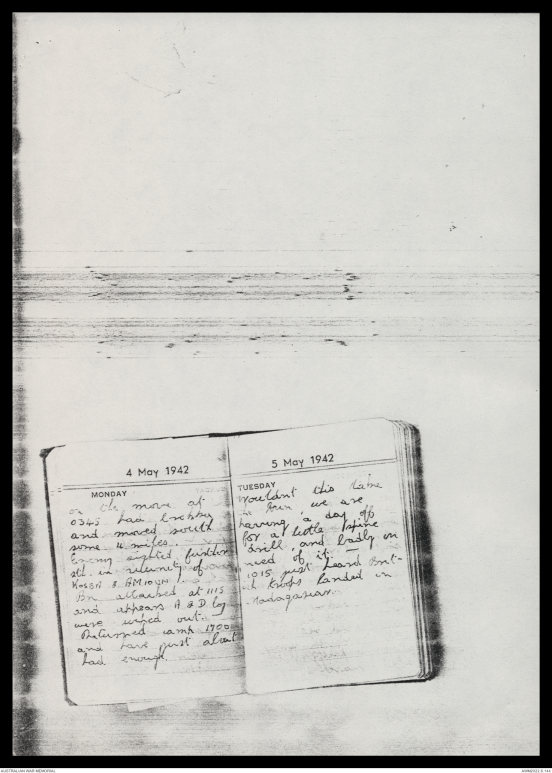 4 May 1942
MONDAY
on the move at
0345 had brekky
and moved south
some 4 miles.
Enemy sighted further
sth. in vicinity of
Bn attacked at 1115
and appears A & D Coy
were wiped out.
Returned camp 1700
and have just about
had enough.
5 May 1942
TUESDAY
Wouldnt this take
the bun, we are
having a day off
for a little spine
drill, and badly in
need of it. —
1015 just heard Brit-
ish troops landed in
Madagascar.
AUSTRALIAN WAR MEMORIAL